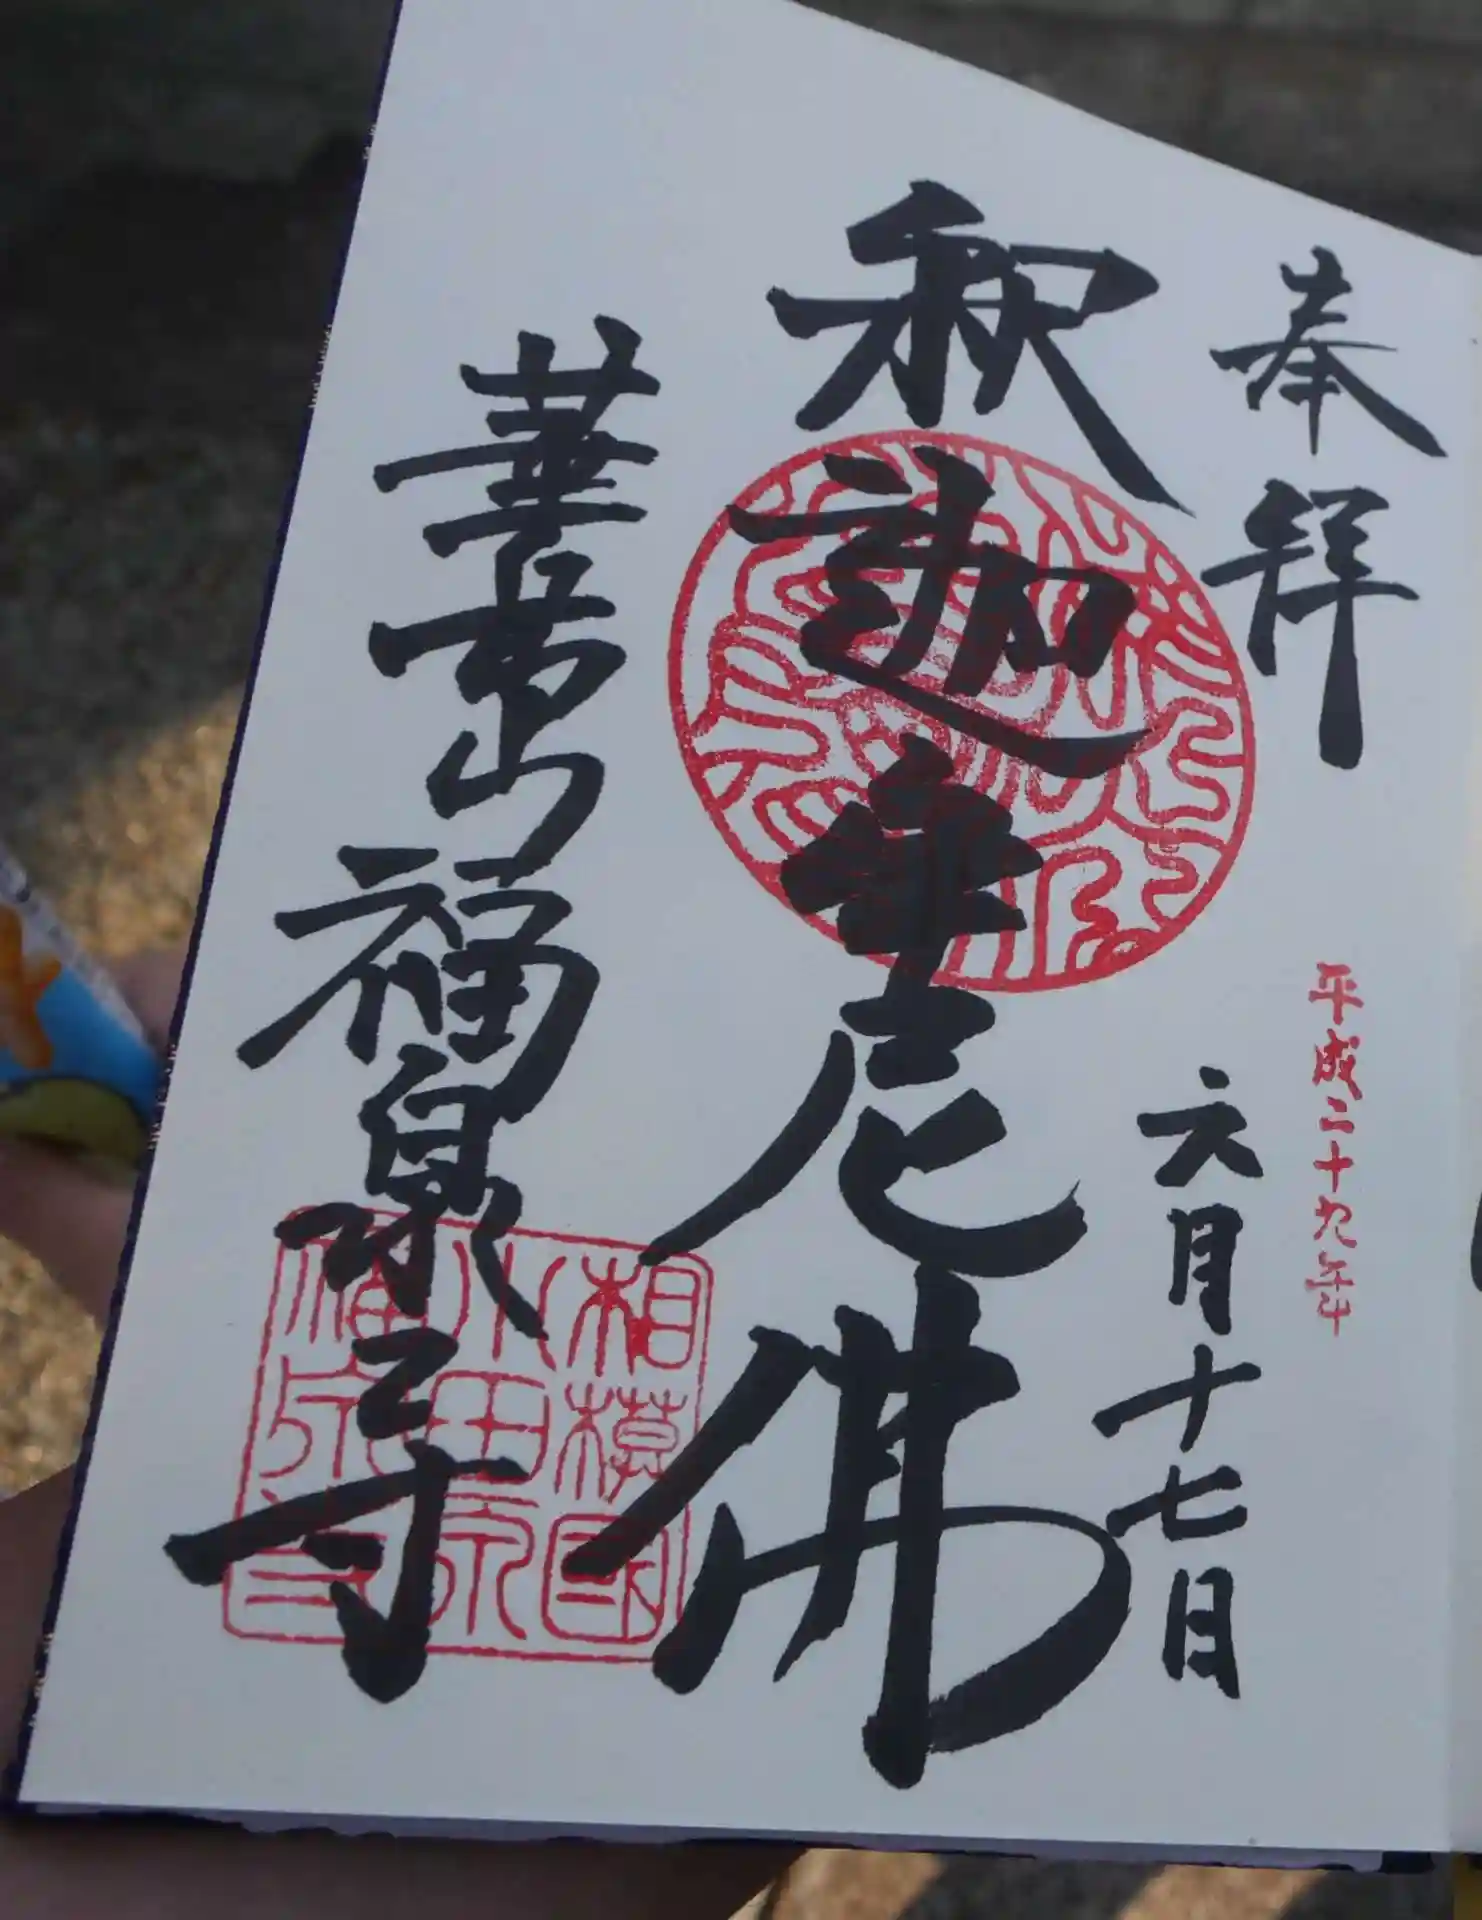 奉拝
平成二十九年
六月十七日
釈迦牟尼佛
華嶽山福泉寺
相模國
小田原
福泉寺